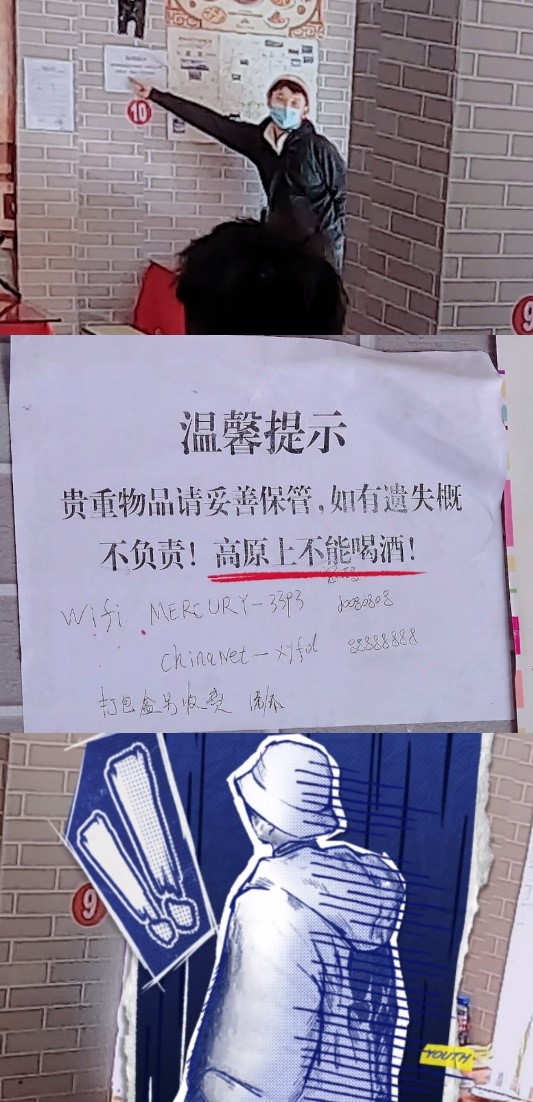 10
9
温馨提示
贵重物品请妥善保管,如有遗失概
不负责!高原上不能喝酒!
Wifi MERCURY-3393
chinaNet-xyfd 88888888
打包盒另收费
9
YOUTH